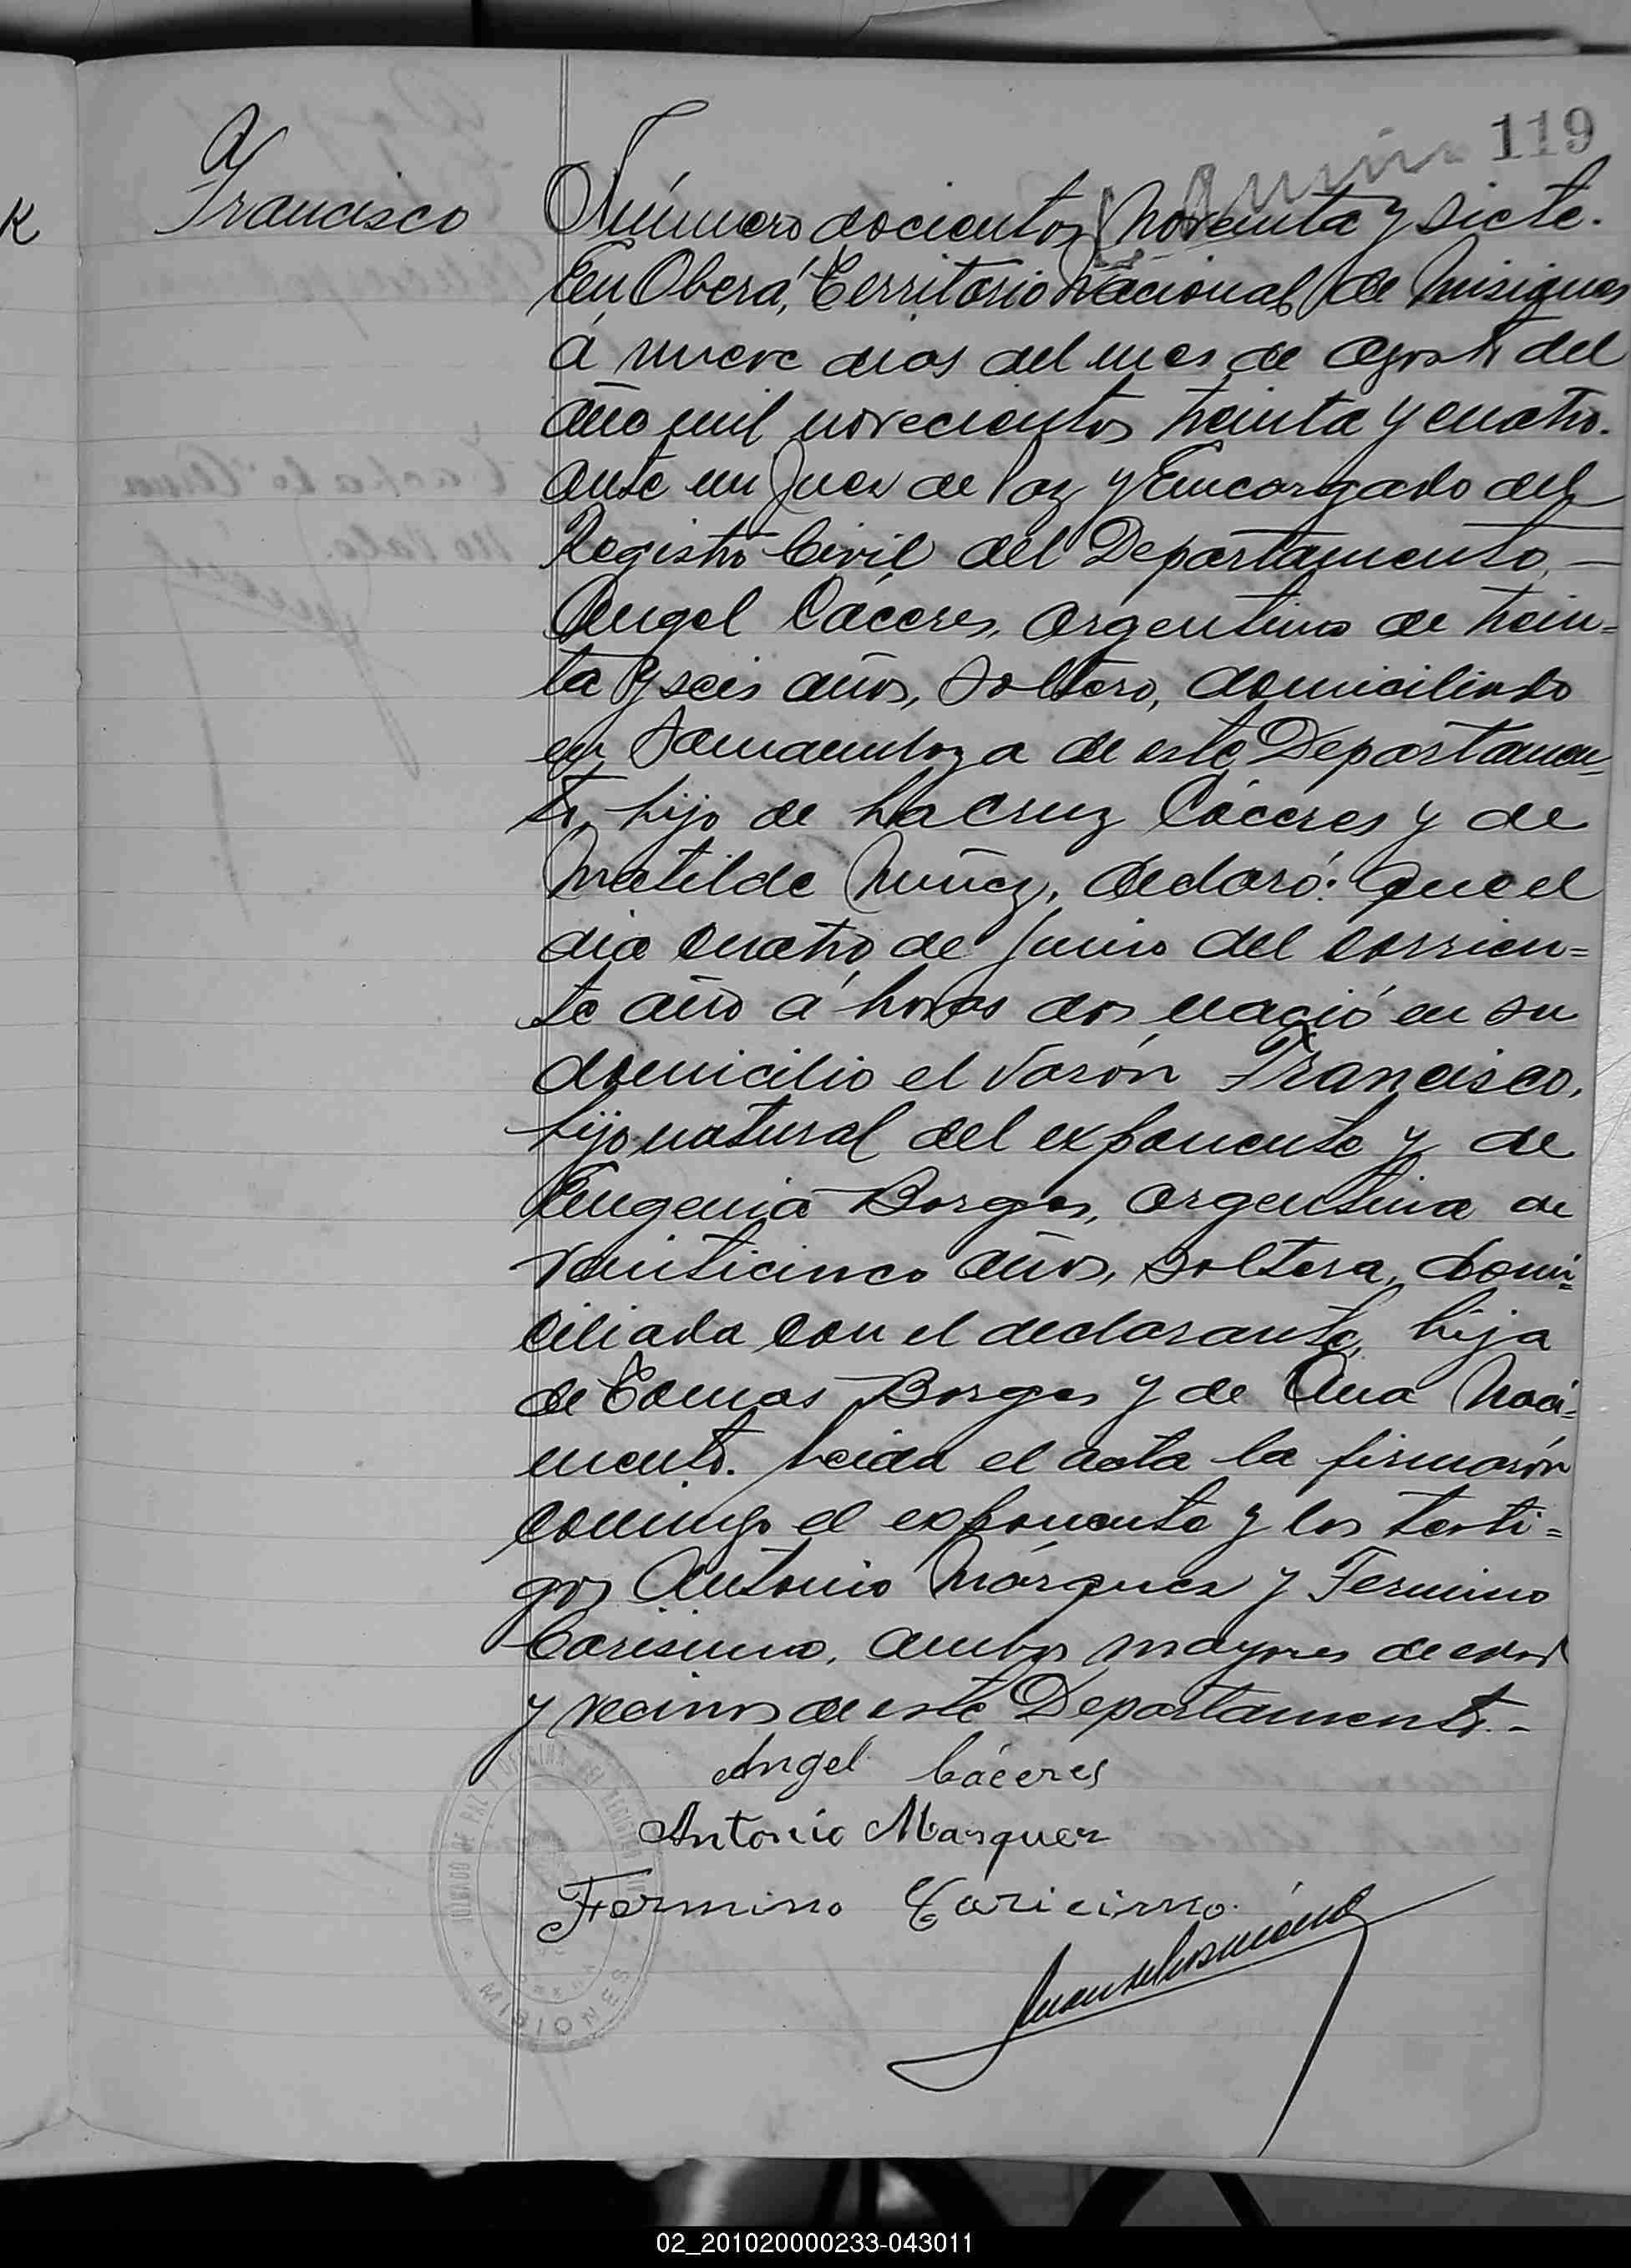 119
Francisco
Número docientos noventa y siete.
En Oberá, Territorio Nacional de Misiones
á nueve dias del mes de agosto del
año mil novecientos treinta y cuatro.
ante mi Juez de Paz y Encargado del
Registro Civil del Departamento, —
Angel Cáceres, argentino de trein=
ta y seis años, soltero, domiciliado
en Samambaya de este Departamen=
to, hijo de La Cruz Cáceres y de
Matilde Núñez, declaró: Que el
dia cuatro de Junio del corrien=
te año á horas dos nació en su
domicilio el varón Francisco,
hijo natural del exponente y de
Eugenia Borges, argentina de
veinticinco años, soltera, domi=
ciliada con el declarante, hija
de Tomas Borges y de Ana Naci=
mento. Leida el acta la firmarón
conmigo el exponente y los testi=
gos Antonio Márquez y Fermino
Carisimo, ambos mayores de edad
y vecinos de este Departamento.-
Angel Cáceres
Antonio Marquez
Fermino Caricimo.
JUZGADO DE PAZ Y OFICINA DEL REGISTRO CIVIL
MISIONES
02_201020000233-043011